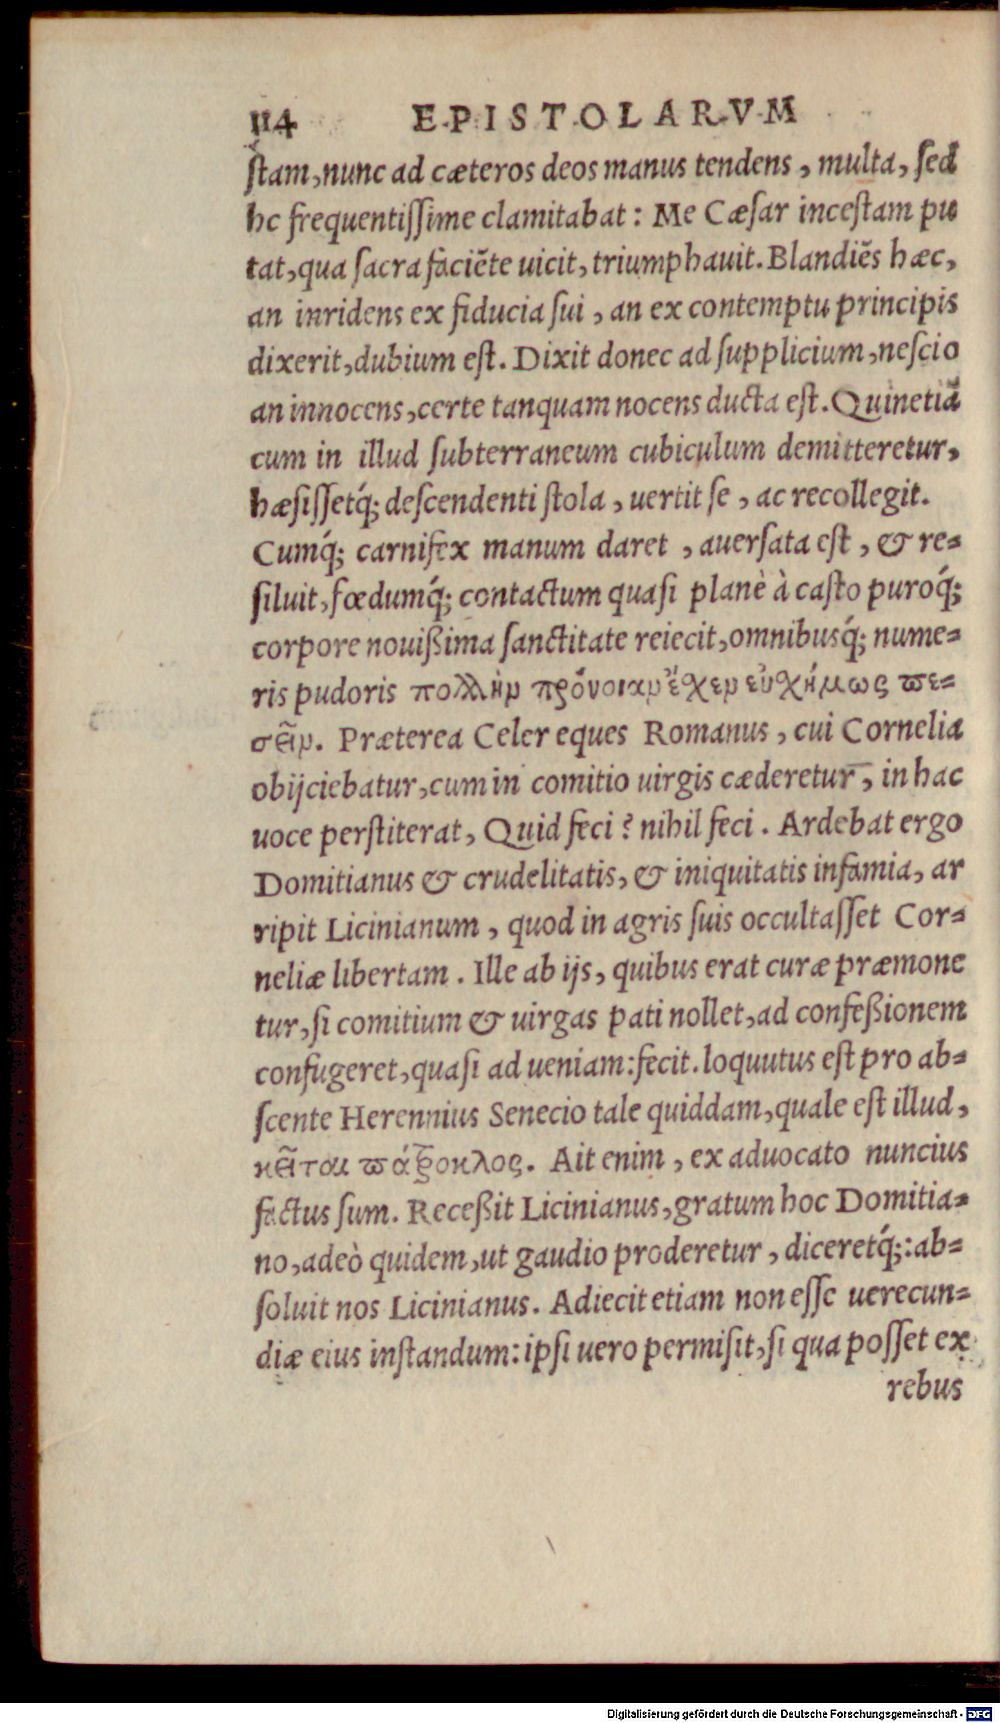 114 EPISTOLARVM
ſtam, nunc ad cæteros deos manus tendens, multa, ſed
hc frequentiſſime clamitabat: Me Cæſar inceſtam pu
tat, qua ſacra faciẽte uicit, triumphauit. Blandiẽs hæc,
an inridens ex fiducia ſui, an ex contemptu principis
dixerit, dubium eſt. Dixit donec ad ſupplicium, neſcio
an innocens, certe tanquam nocens ducta eſt. Quinetiã
cum in illud ſubterraneum cubiculum demitteretur,
hæſiſſetq́; deſcendenti ſtola, uertit ſe, ac recollegit.
Cumq́; carnifex manum daret, auerſata eſt, & re-
ſiluit, fœdumq́; contactum quaſi planè à caſto puroq́;
corpore nouißima ſanctitate reiecit, omnibusq́; nume-
ris pudoris πολλὴν πρόνοιαν ἔχεν εὐχήμως πε-
σεῖν. Præterea Celer eques Romanus, cui Cornelia
obijciebatur, cum in comitio uirgis cæderetur, in hac
uoce perſtiterat, Quid feci? nihil feci. Ardebat ergo
Domitianus & crudelitatis, & iniquitatis infamia, ar
ripit Licinianum, quod in agris ſuis occultaſſet Cor-
neliæ libertam. Ille ab ijs, quibus erat curæ præmone
tur, ſi comitium & uirgas pati nollet, ad confeßionem
confugeret, quaſi ad ueniam: fecit. loquutus eſt pro ab-
ſcente Herennius Senecio tale quiddam, quale eſt illud,
κεῖται πάτροκλος. Ait enim, ex aduocato nuncius
factus ſum. Receßit Licinianus, gratum hoc Domitia-
no, adeò quidem, ut gaudio proderetur, diceretq́;: ab-
ſoluit nos Licinianus. Adiecit etiam non eſſe uerecun-
diæ eius inſtandum: ipſi uero permiſit, ſi qua poſſet ex
rebus
Digitalisierung gefördert durch die Deutsche Forschungsgemeinschaft - DFG